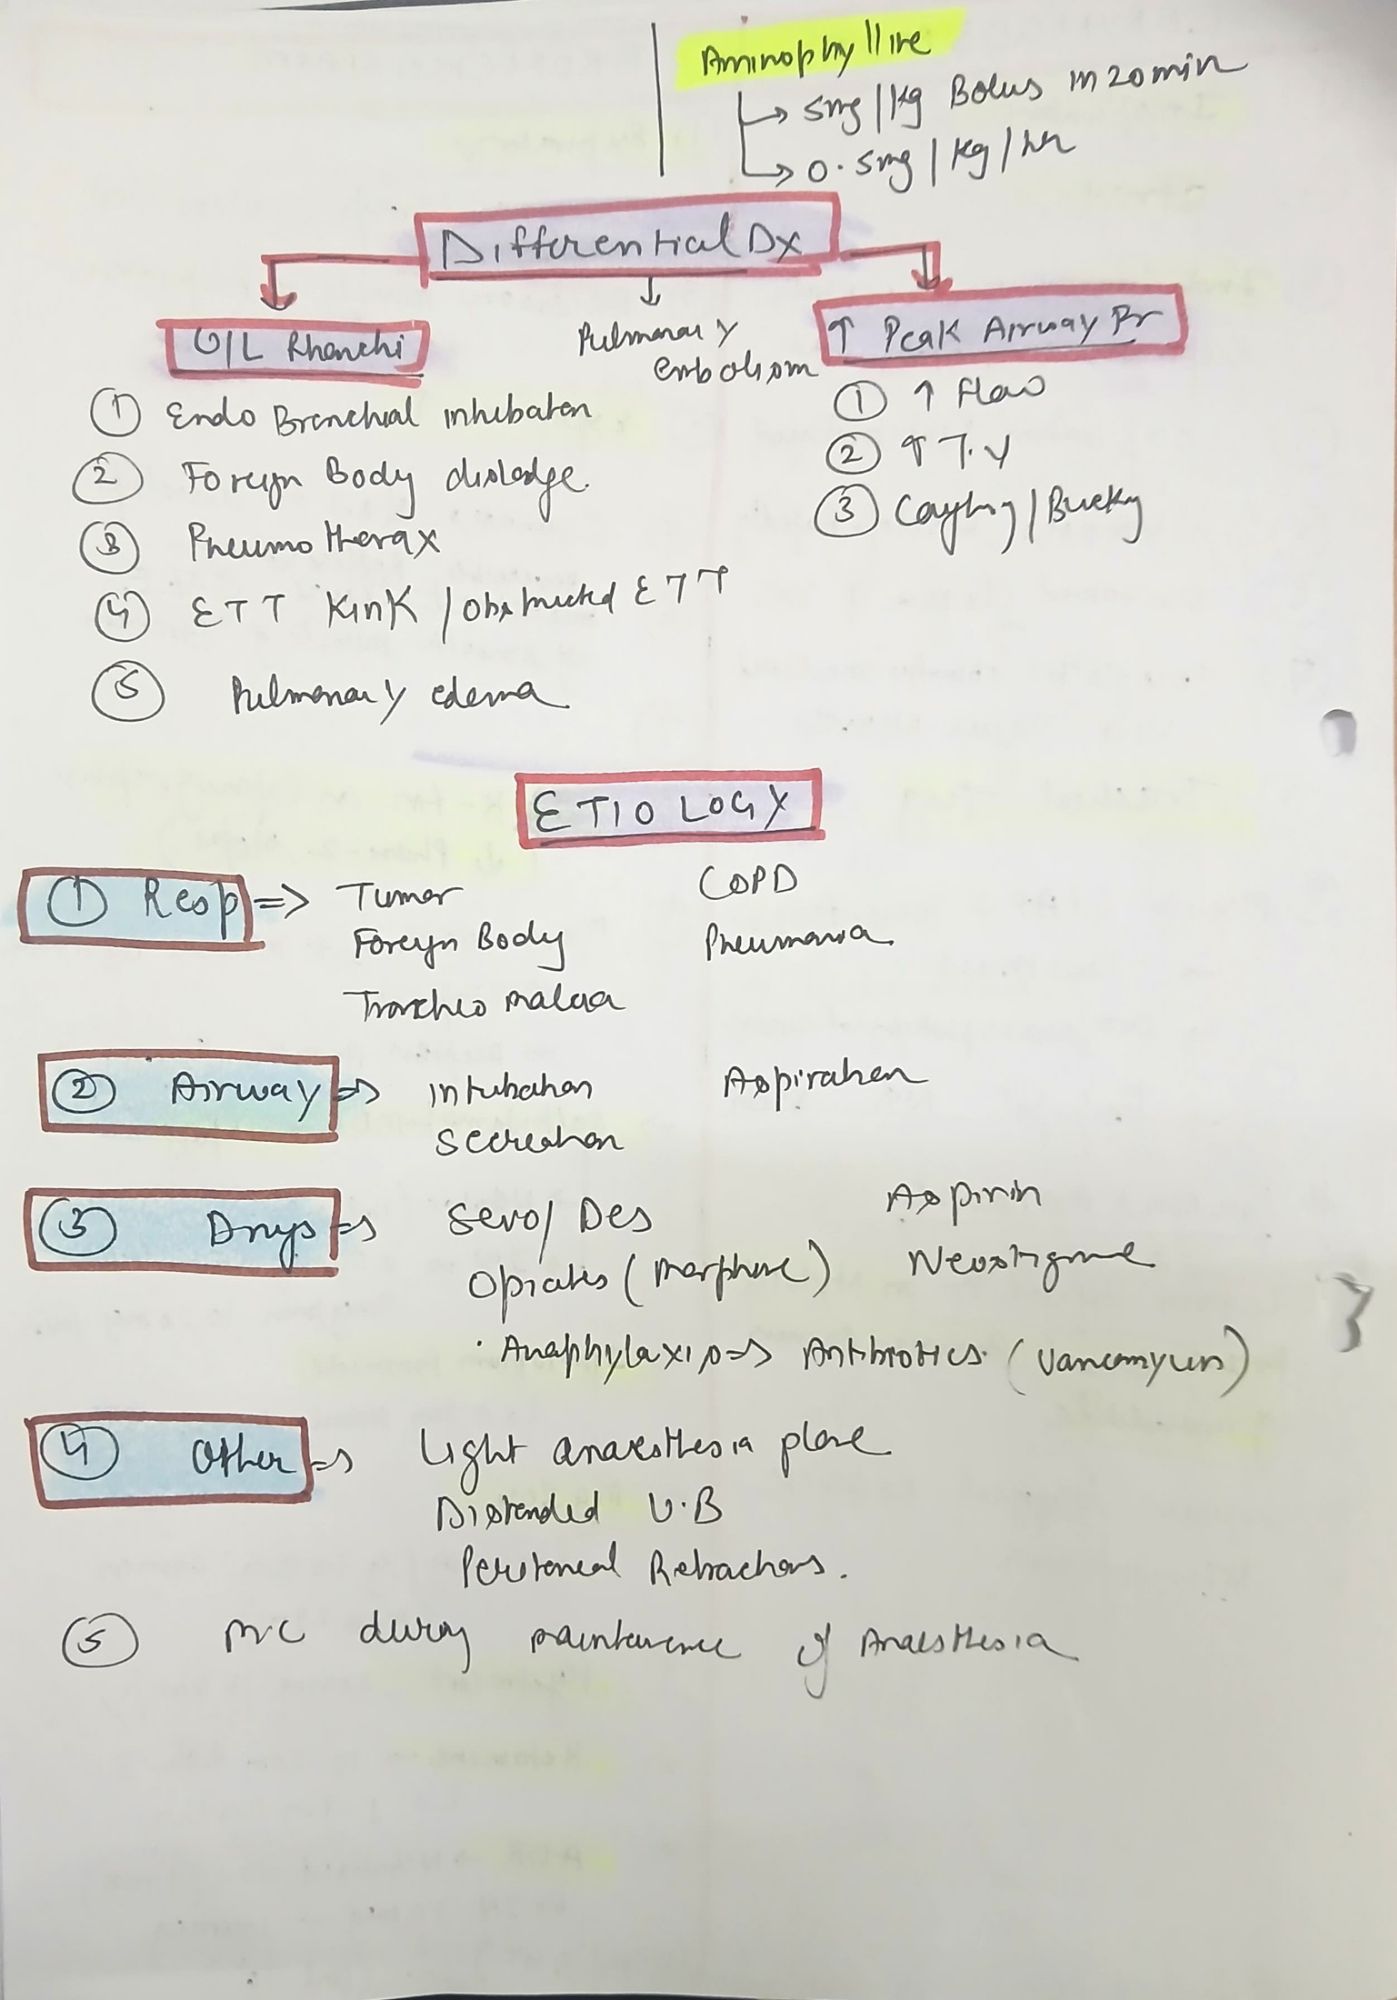 Aminophylline
→ 5mg/kg Bolus in 20min
→ 0.5mg/kg/hr
Differential Dx
U/L Rhonchi
① Endo Bronchial intubation
② Foreign Body dislodge
③ Pneumothorax
④ ETT Kink / Obstructed ETT
⑤ Pulmonary edema
↓
Pulmonary
embolism
↑ Peak Airway Pr
① ↑ Flow
② ↑ T.V
③ Coughing/Bucking
ETIOLOGY
① Resp => Tumor COPD
Foreign Body Pneumonia
Tracheo malacia
② Airway => intubation Aspiration
Secreation
③ Drugs => Sevo/Des Aspirin
Opiates (morphine) Neostigmine
· Anaphylaxis => Antibiotics. (Vancomycin)
④ Other => Light anaesthesia plane
Distended U.B
Peritoneal Retractions.
⑤ M.C during maintenence of Anaesthesia